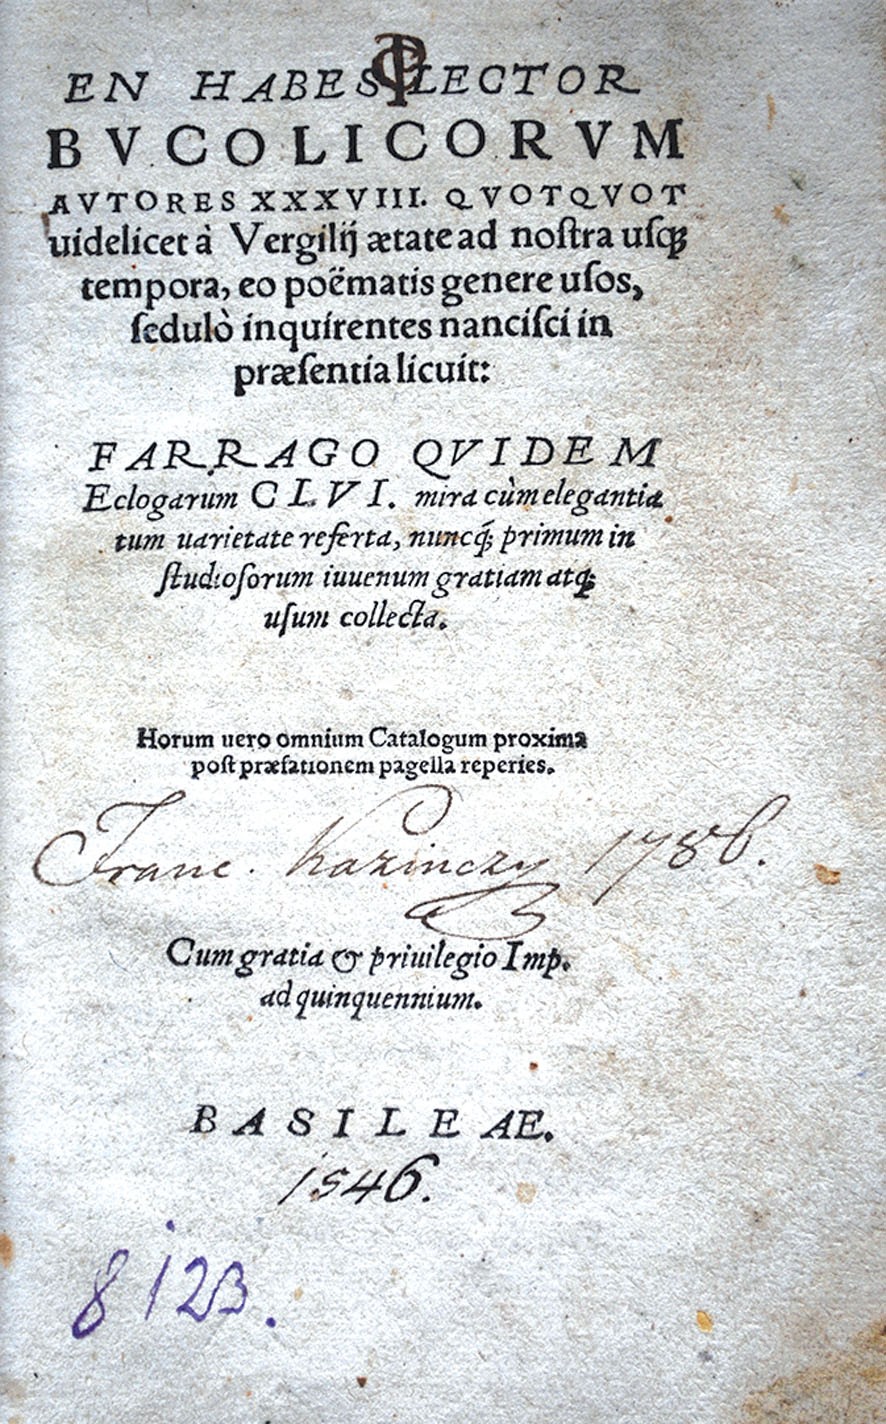 EN HABES LECTOR
BVCOLICORVM
AVTORES XXXVIII. QVOTQVOT
uidelicet à Vergilij ætate ad noſtra uſq;
tempora, eo poëmatis genere uſos,
ſedulò inquirentes nanciſci in
præſentia licuit:
FARRAGO QVIDEM
Eclogarum CLVI. mira cùm elegantia
tum uarietate referta, nuncq́; primum in
ſtudioſorum iuuenum gratiam atq;
uſum collecta.
Horum uero omnium Catalogum proxima
poſt præfationem pagella reperies.
Franc. Kazinczy 1786.
Cum gratia & priuilegio Imp.
ad quinquennium.
BASILEAE.
1546.
8123.